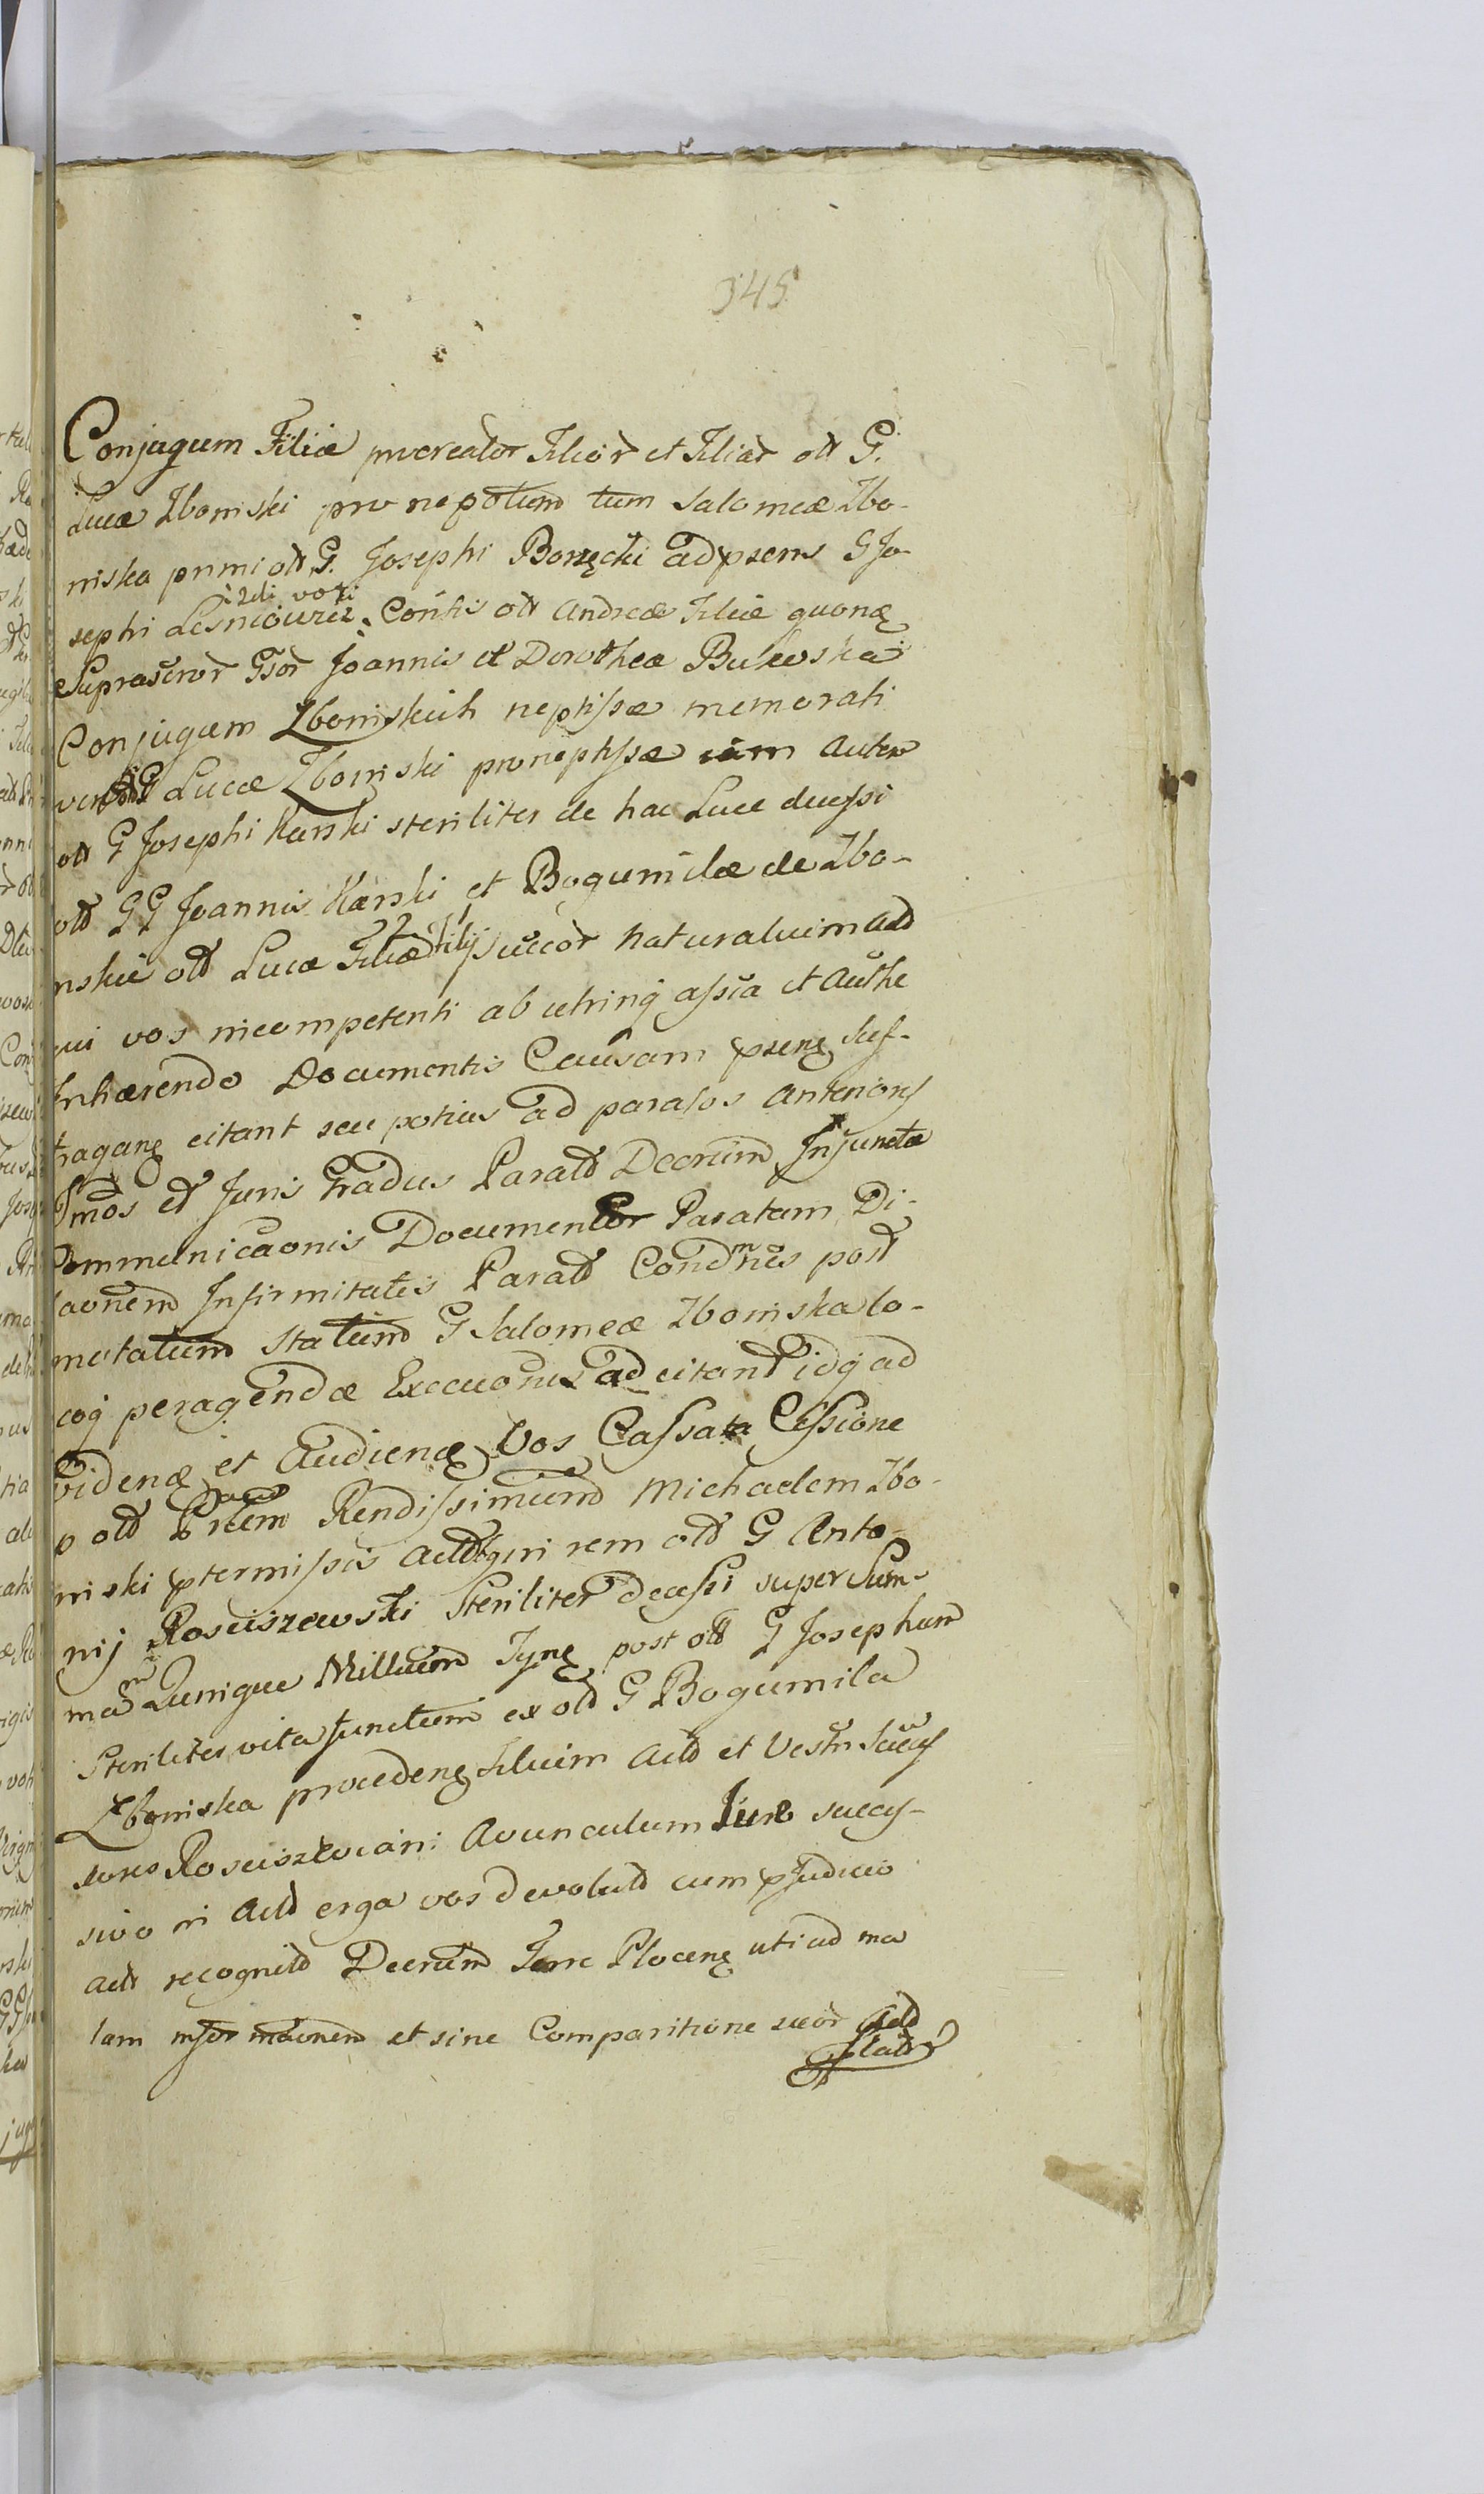 345
Conjugum Filiæ procreator Filior et Filiar olt G.
Lucæ Zboinski pronepotum tum Salomeæ Zbo-
niska primi olt G. Josephi Borzęcki ad prens G Jo-
2di voti
sephi Lesniowicz Contis olt Andreæ Filiæ quonę
Suprascror Gsor Joannis et Dorothea Bukowska
Conjugum Zboinskich neptissæ memorati
vero olt G Lucæ Zboinski proneptissæ iam autem
olt G Josephi Karski steriliter de hac Luce decessi
olt GG Joannis Karski et Bogumilæ de Zbo-
nskie olt Lucæ Filiæ Filij succor naturalium Actt
qui vos incompetenti ab utrinq assta et Authe
Inhærendo Documentis Causam prenę suf-
fragane citant seu potius ad parasos anteriores
Tmos et Juris Gradus Paratt Decrum Injunctæ
Communicaonis Documentor Paratam Di-
laonem Infirmitatis Paratt Condmnes post
motatum Statum G Salomeæ Zboinska lo-
coq peragendæ Execuonis adcitant idq ad
videnę et Audienę Vos Cassata Cessione
p olt Prtem Rendissimum Michaelem Zbo-
niski ptermissis Acttbq in rem olt G Anto-
nij Rosciszewski Steriliter decessi super Sum-
mam Quinque Millium Tynę post olt G Josephum
Steriliter vita functum ex olt G Bogumila
Zboniska procedenę Filium Actt et Vestri Succes
sores Rosciszewiani Avunculum Jure succes-
sivo in Actt erga vos devolutt cum pjudicio
Actt recognitt Decrum Terre Plocenę uti ad ma
lam informaonem et sine Comparitione suor Actt
flattr